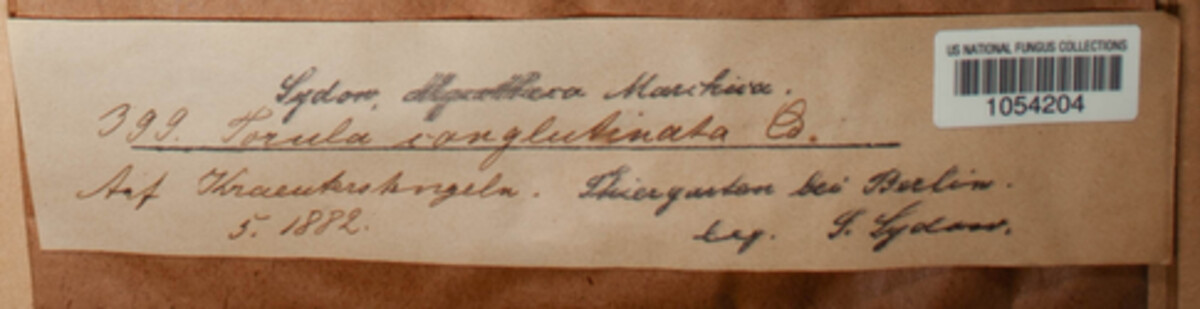 Sydow, Mycotheca Marchica.
399. Torula conglutinata Co.
Auf Kraeuterstengeln. Thiergarten bei Berlin.
5. 1882. leg. P. Sydow.
US NATIONAL FUNGUS COLLECTIONS
1054204